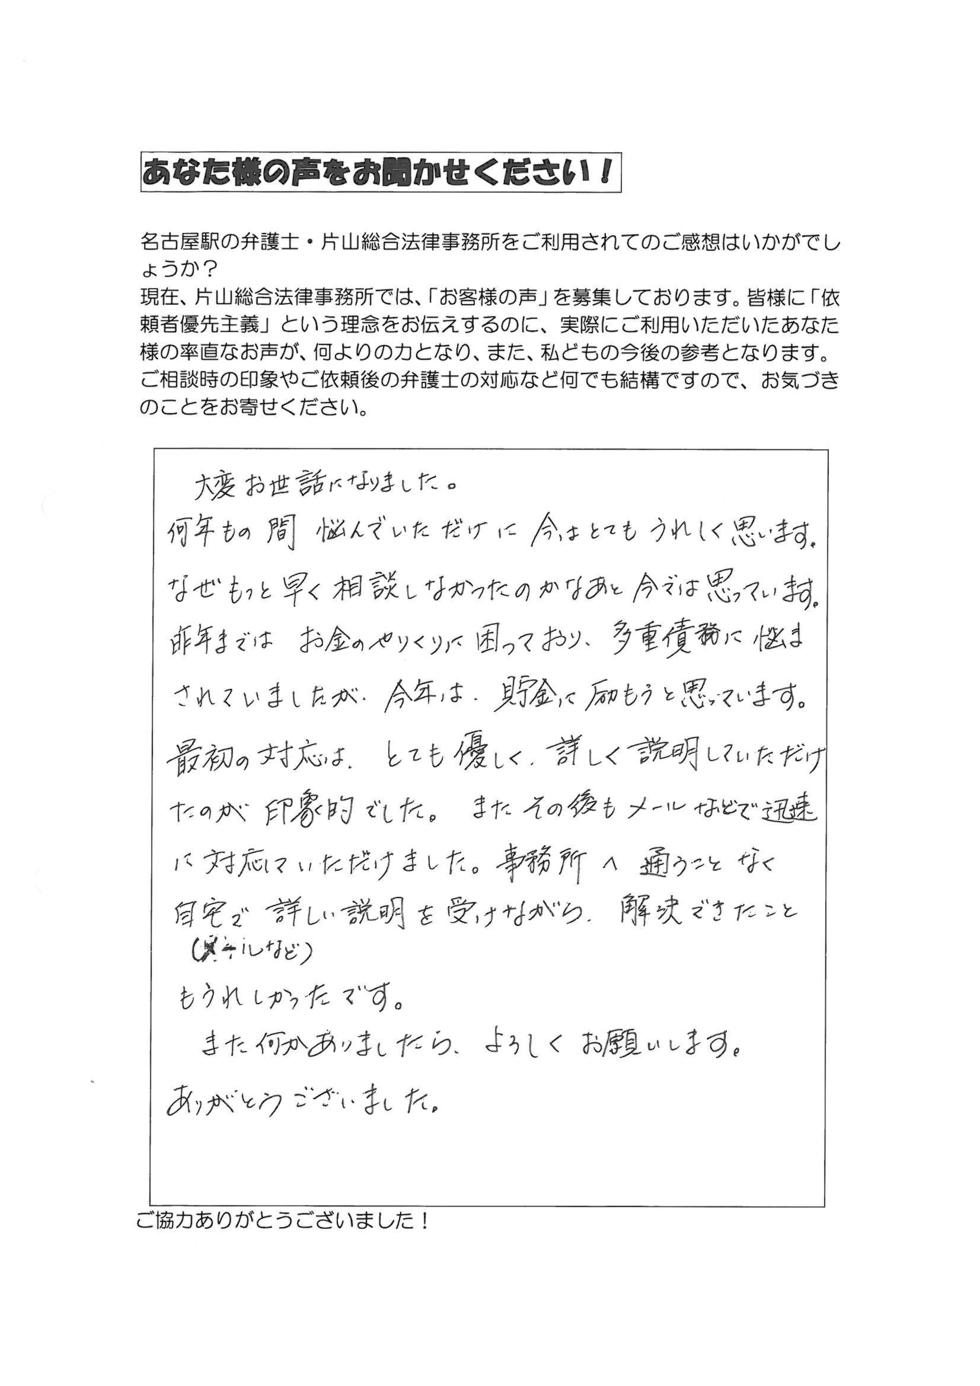 あなた様の声をお聞かせください！
名古屋駅の弁護士・片山総合法律事務所をご利用されてのご感想はいかがでし
ょうか？
現在、片山総合法律事務所では、「お客様の声」を募集しております。皆様に「依
頼者優先主義」という理念をお伝えするのに、実際にご利用いただいたあなた
様の率直なお声が、何よりの力となり、また、私どもの今後の参考となります。
ご相談時の印象やご依頼後の弁護士の対応など何でも結構ですので、お気づき
のことをお寄せください。
大変お世話になりました。
何年もの間 悩んでいただけに 今はとてもうれしく思います。
なぜもっと早く相談しなかったのかなあと今では思っています。
昨年までは お金のやりくりに困っており、多重債務に悩ま
されていましたが、今年は、貯金に励もうと思っています。
最初の対応は、とても優しく、詳しく説明していただけ
たのが印象的でした。またその後もメールなどで迅速
に対応していただけました。事務所へ通うことなく
自宅で詳しい説明を受けながら、解決できたこと
(メールなど)
もうれしかったです。
また何かありましたら、よろしくお願いします。
ありがとうございました。
ご協力ありがとうございました！